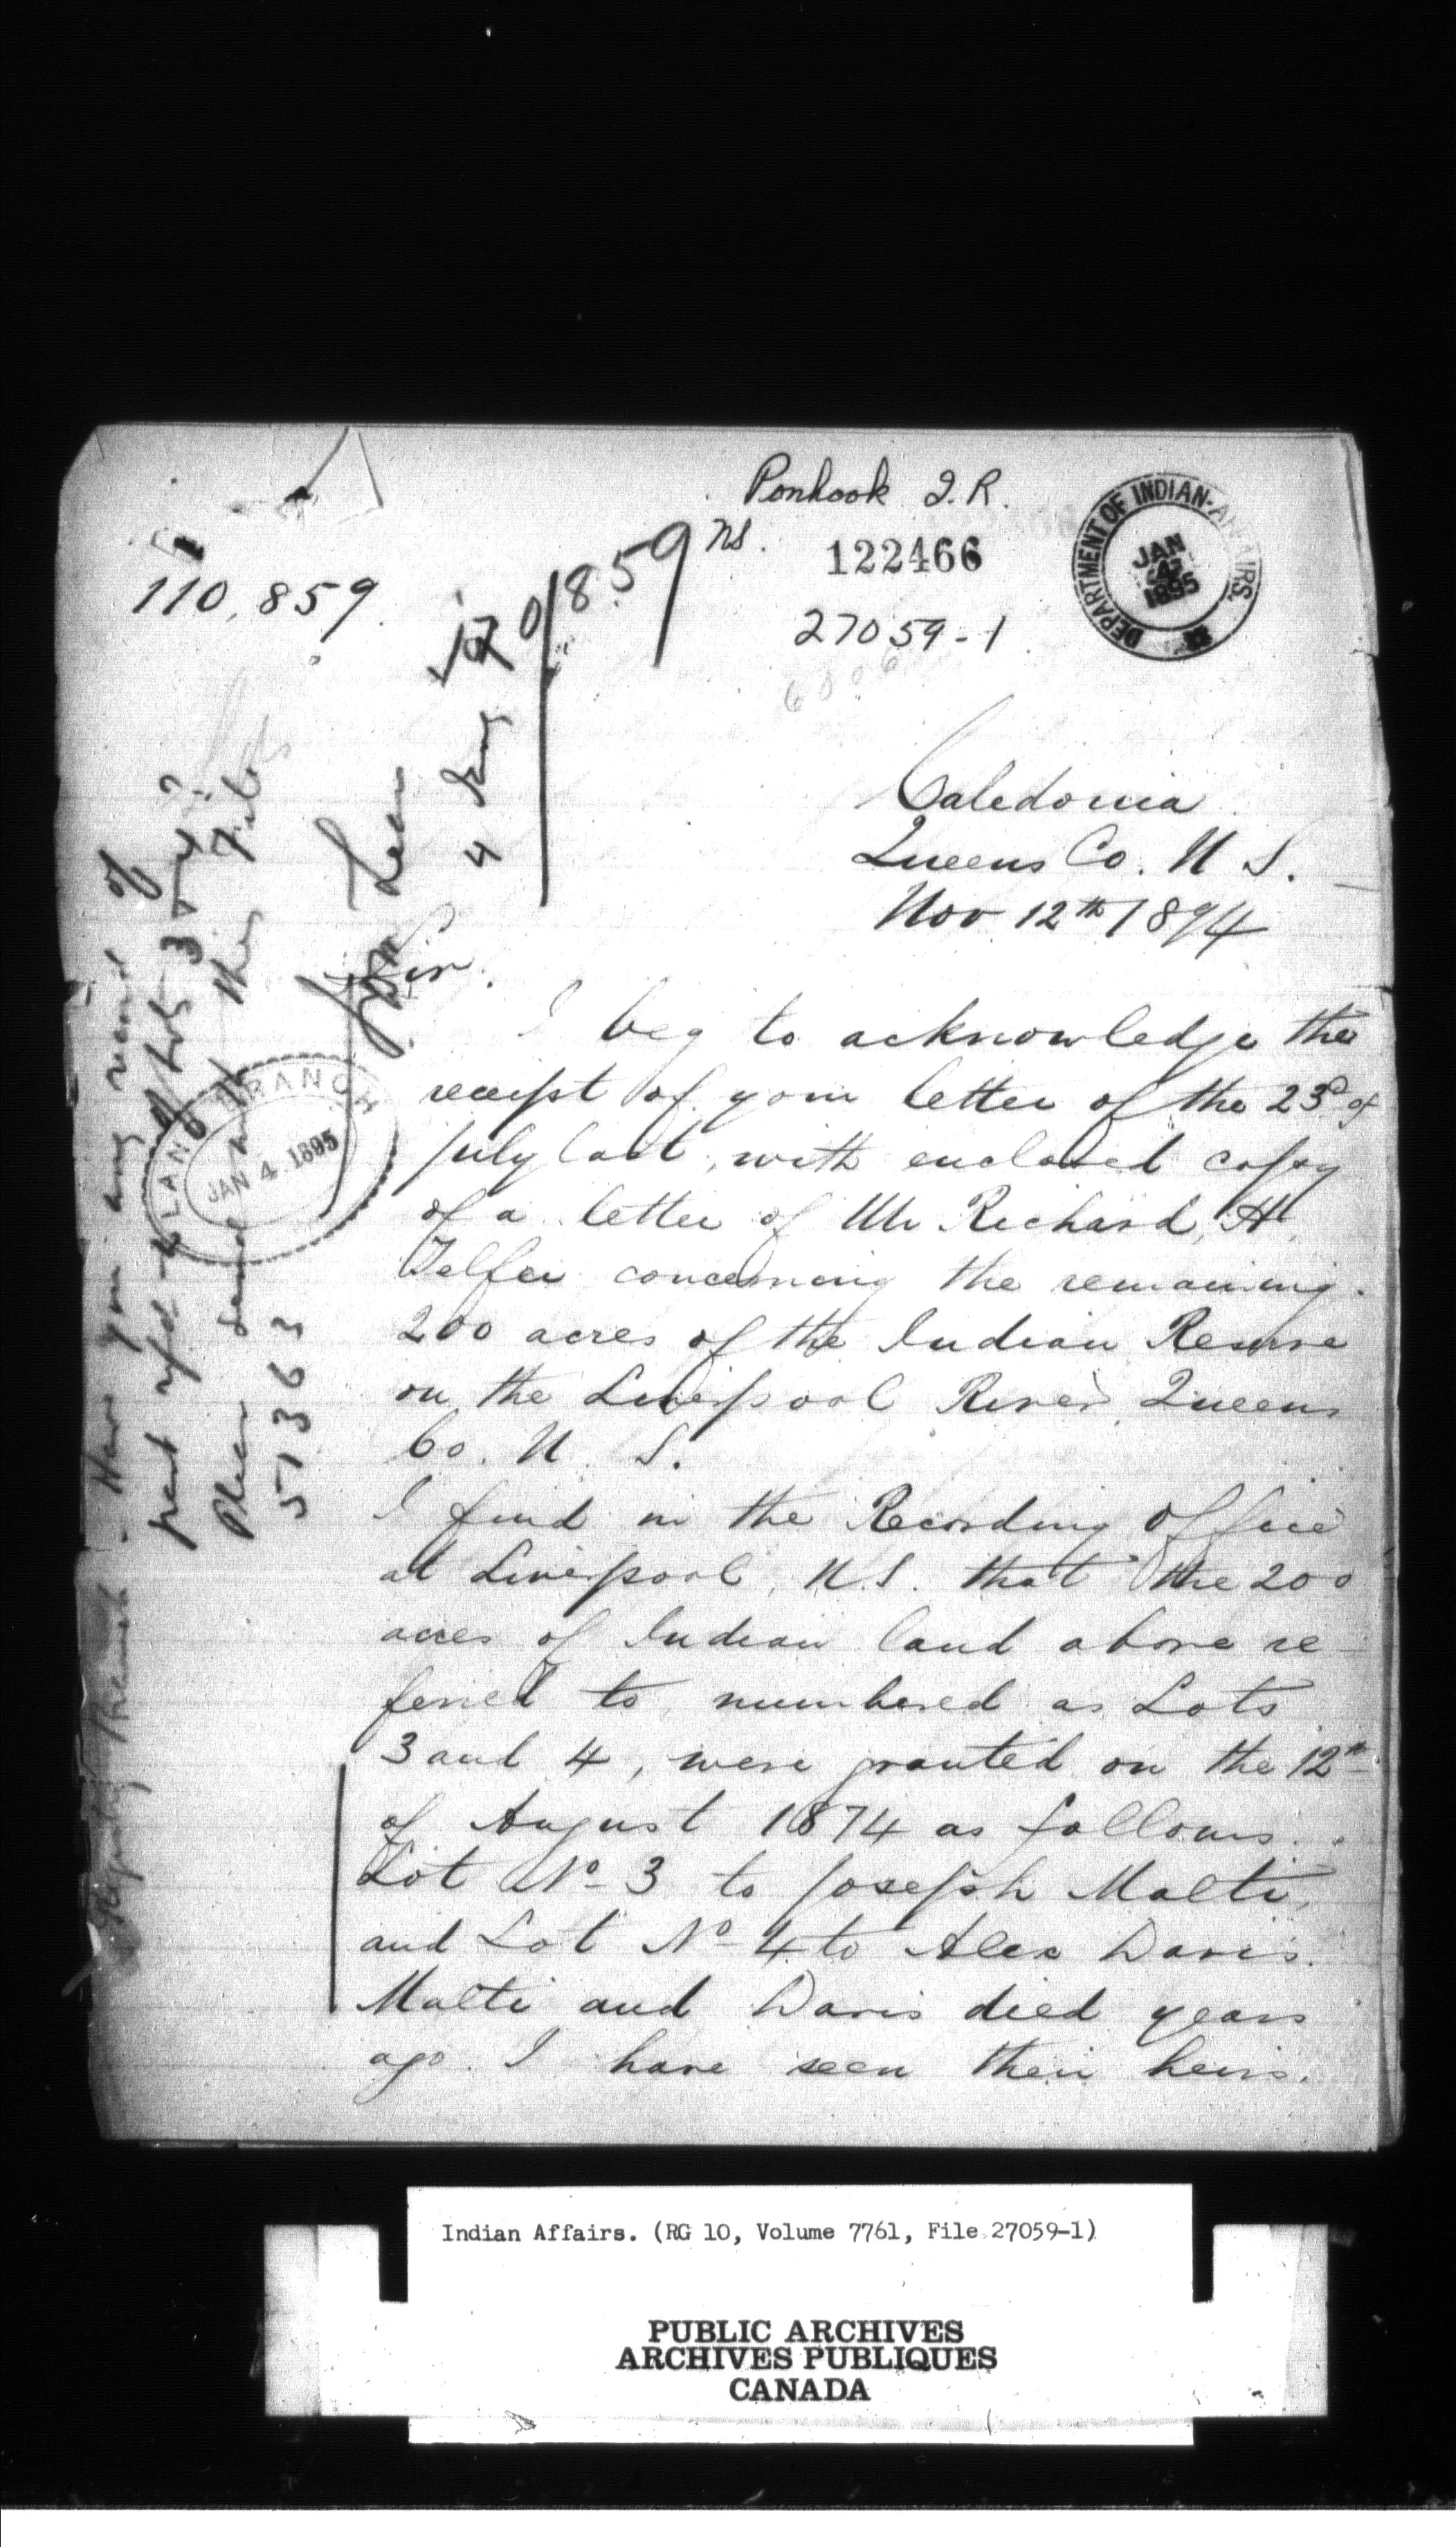 Ponhook I.R.
122466
27059-1
DEPARTMENT OF INDIAN AFFAIRS.
JAN
1895
110,859
859 NS.
Caledonia
Queens Co. N S.
Nov 12th 1894
Sir.
I beg to acknowledge the
receipt of your letter of the 23d of
July last, with enclosed copy
of a letter of Mr Richard H.
Telfer concerning the remaining
200 acres of the Indian Reserve
on the Liverpool River, Queens
Co. N. S.
I find in the Recording Office
at Liverpool, N.S. that the 200
acres of Indian land above re-
ferred to, numbered as Lots
3 and 4, were granted on the 12th
of August 1874 as follows.
Lot No 3 to Joseph Malti,
and Lot No 4 to Alex Davis.
Malti and Davis died years
ago. I have seen their heirs.
LAND BRANCH
JAN 4 1895
Have you any record of
pat of Lots 3 & 4?
Please send me this file
51363
Indian Affairs. (RG 10, Volume 7761, File 27059-1)
PUBLIC ARCHIVES
ARCHIVES PUBLIQUES
CANADA